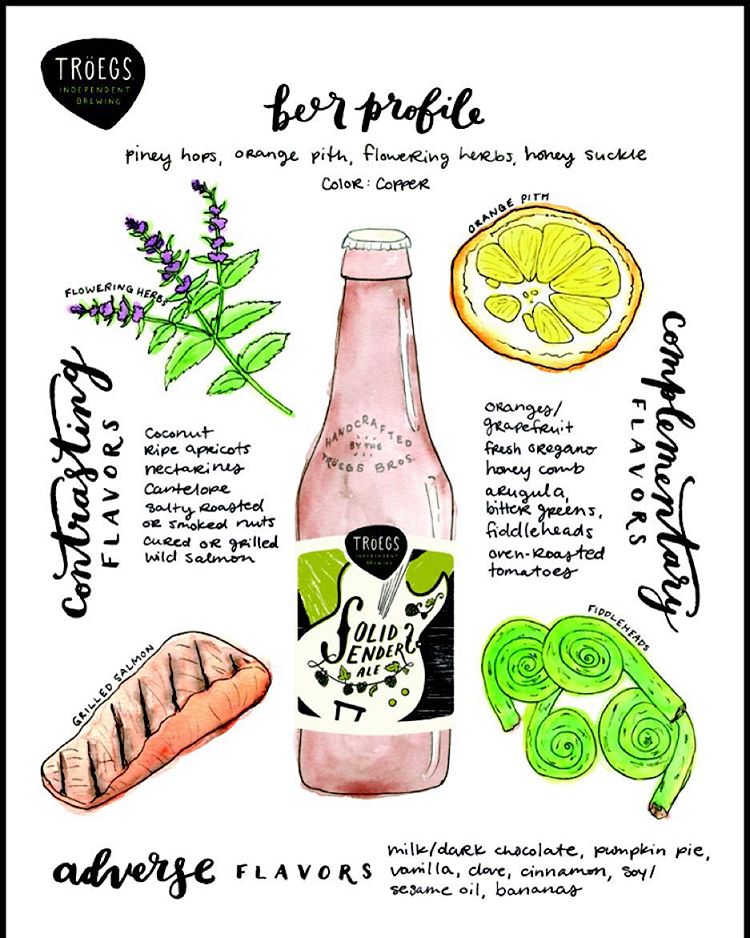 TRöEGS
INDEPENDENT
BREWING
beer profile
piney hops, orange pith, flowering herbs, honey suckle
COLOR: COPPER
FLOWERING HERBS
ORANGE PITH
contrasting
FLAVORS
Coconut
Ripe apricots
nectarines
Cantelope
Salty Roasted
or smoked nuts
cured or grilled
wild salmon
HANDCRAFTED
BY THE
TRöEGS BROS.
TRöEGS
INDEPENDENT
BREWING
SOLID
SENDER
ALE
complementary
FLAVORS
oranges/
grapefruit
fresh oregano
honey comb
arugula,
bitter greens,
fiddleheads
oven-Roasted
tomatoes
GRILLED SALMON
FIDDLEHEADS
adverse FLAVORS
milk/dark chocolate, pumpkin pie,
vanilla, clove, cinnamon, soy/
sesame oil, bananas